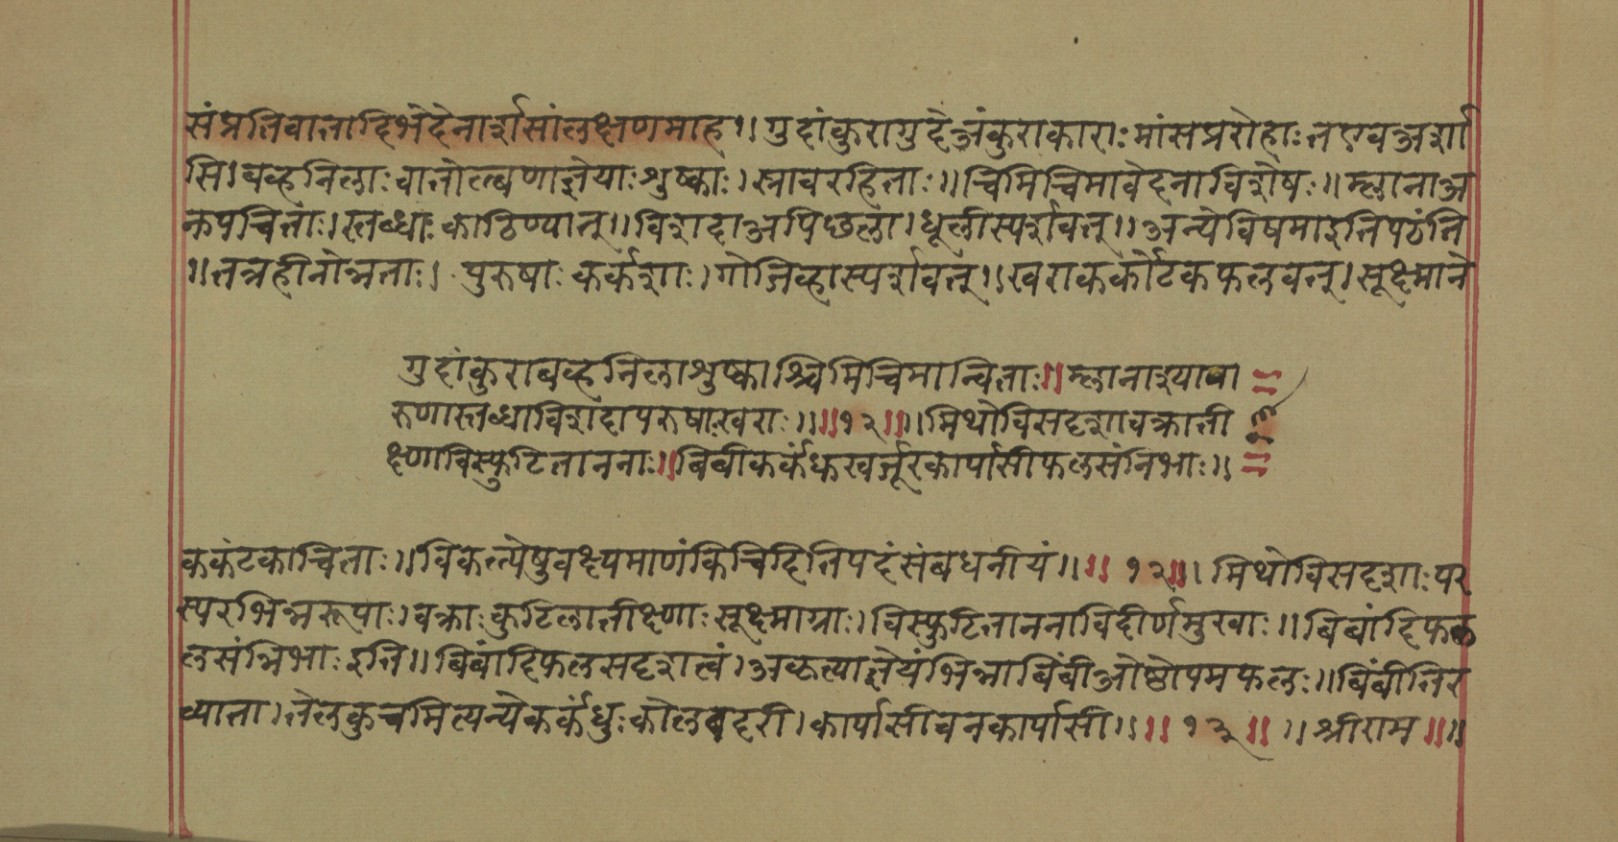 संप्रतिवातादिभेदेनार्शसांलक्षणमाह॥गुदांकुरागुदेअंकुराकाराःमांसप्ररोहाःतएवअर्शां
सि।बव्हनिलाःवातोल्बणाज्ञेयाःशुष्काः।स्रावरहिताः॥चिमिचिमावेदनाविशेषः॥म्लानाअ
नपचिताः।स्तब्धाःकाठिण्यात्॥विशदाअपिछला।धूलीस्पर्शवत्॥अन्येविषमाइतिपठंति
॥तत्रहीनोन्नताः।पुरुषाःकर्कशाः।गोजिव्हास्पर्शवत्॥खराकर्कोटकफलवत्।सूक्ष्माने
गुदांकुराबव्हनिलाशुष्काश्चिमिचिमान्विताः॥म्लानाश्यावा
रुणास्तब्धाविशदापरुषाःखराः॥॥१२॥॥मिथोविसदृशावक्रास्ती
क्ष्णाविस्फुटिताननाः॥बिंबीकर्कंधुखर्जूरकार्पासीफलसंनिभाः॥
ककंटकाचिताः॥विकेत्येषुवक्ष्यमाणंकिंचिदितिपदंसंबधनीयं॥॥१२॥॥मिथोविसदृशाःपर
स्परभिन्नरूपाः।वक्राःकुटिलातीक्ष्णाःसूक्ष्माग्राः।विस्फुटिताननाविदीर्णमुखाः॥बिबांदिफ
लसंन्निभाःइति॥बिबांदिफलसदृशत्वं।अकृत्याज्ञेयंभिन्नाबिंबीओष्ठोपमफलः॥बिंबीतिर
व्याता।तेलकुचमित्यन्येकर्कंधुःकोलबदरी।कार्पासीवनकार्पासी॥॥१३॥॥श्रीराम॥॥